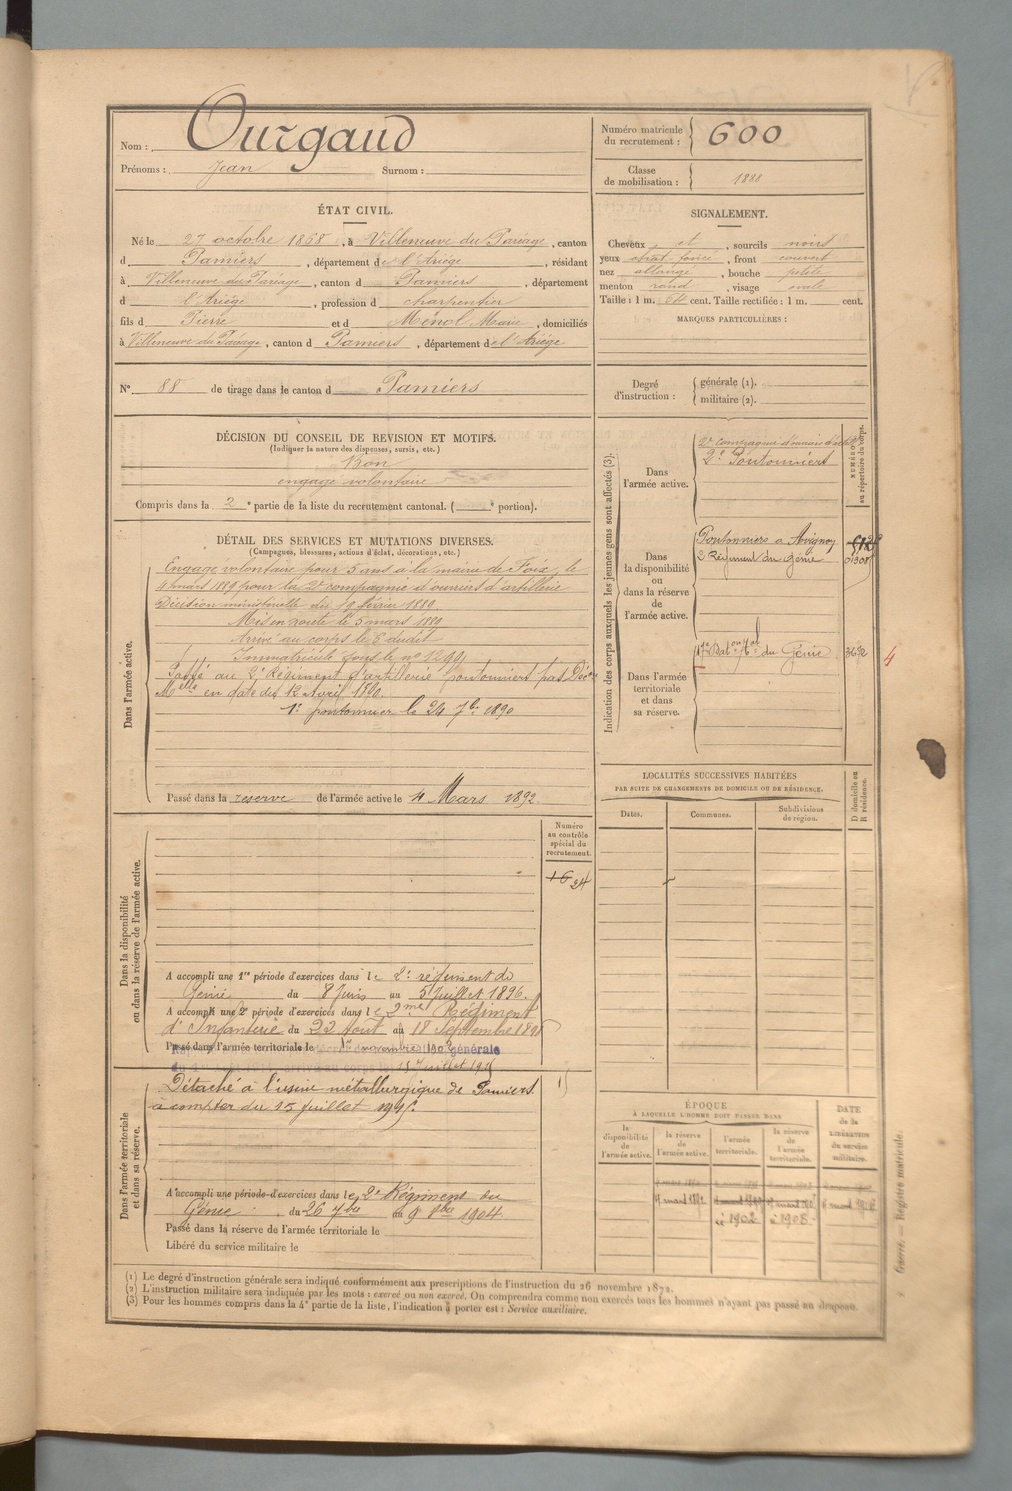 Nom : Ourgaud
Prénoms : Jean Surnom :
Numéro matricule du recrutement : 600
Classe de mobilisation : 1888
ÉTAT CIVIL.
Né le 27 octobre 1868, à Villeneuve du Paréage, canton
d Pamiers, département de l'Ariège, résidant
à Villeneuve du Paréage, canton d Pamiers, département
d l'Ariége, profession d charpentier
fils d Pierre et d Ménol Marie, domiciliés
à Villeneuve du Paréage, canton d Pamiers, département de l'Ariége
SIGNALEMENT.
Cheveux et, sourcils noirs
yeux chat. foncé, front couvert
nez allongé, bouche petite
menton rond, visage ovale
Taille : 1 m. 64 cent. Taille rectifiée : 1 m. cent.
MARQUES PARTICULIÈRES :
N° 88 de tirage dans le canton d Pamiers
Degré d'instruction : générale (1).
militaire (2).
DÉCISION DU CONSEIL DE REVISION ET MOTIFS.
(Indiquer la nature des dispenses, sursis, etc.)
Bon
engagé volontaire
Compris dans la 2e partie de la liste du recrutement cantonal. ( e portion).
DÉTAIL DES SERVICES ET MUTATIONS DIVERSES.
(Campagnes, blessures, actions d'éclat, décorations, etc.)
Dans l'armée active.
Engagé volontaire pour 5 ans à la mairie de Foix, le
4 mars 1889 pour la 2e compagnie d'ouvriers d'artillerie
Décision ministérielle du 19 février 1889.
Mis en route le 5 mars 1889
Arrivé au corps le 6 dudit
Immatriculé sous le n° 1299
Passé au 2e Régiment d'artillerie pontonniers par Décon
Melle en date du 12 Avril 1890.
1e pontonnier le 24 7bre 1890
Passé dans la reserve de l'armée active le 4 Mars 1892.
Indication des corps auxquels les jeunes gens sont affectés (3).
NUMÉROS au répertoire du corps.
Dans l'armée active.
2e compagnie d'ouvriers d'artie
2e Pontonniers
Dans la disponibilité ou dans la réserve de l'armée active.
Pontonniers a Avignon
2 Régiment du génie
Dans l'armée territoriale et dans sa réserve.
17e Baton Tal du Génie
4
LOCALITÉS SUCCESSIVES HABITÉES
PAR SUITE DE CHANGEMENTS DE DOMICILE OU DE RÉSIDENCE.
Dates. Communes. Subdivisions de région. D domicile ou R résidence.
Dans la disponibilité ou dans la réserve de l'armée active.
Numéro au contrôle spécial du recrutement.
16 24
A accompli une 1re période d'exercices dans le 2e régiment de
Génie du 8 Juin au 5 Juillet 1896.
A accompli une 2e période d'exercices dans le 2me Régiment
d'Infanterie du 22 Août au 18 Septembre 189
Passé dans l'armée territoriale le 1er novembre 1902
générale
Juillet
Dans l'armée territoriale et dans sa réserve.
Détaché à l'usine métallurgique de Pamiers
à compter du 15 juillet 1915.
A accompli une période d'exercices dans le 2e Régiment du
Génie du 26 7bre au 9 8bre 1904.
Passé dans la réserve de l'armée territoriale le
Libéré du service militaire le
ÉPOQUE
À LAQUELLE L'HOMME DOIT PASSER DANS
la disponibilité de l'armée active. la réserve de l'armée active. l'armée territoriale. la réserve de l'armée territoriale.
DATE de la LIBÉRATION du service militaire.
4 mars 1892
1902 1908
Registre matricule.
(1) Le degré d'instruction générale sera indiqué conformément aux prescriptions de l'instruction du 26 novembre 1872.
(2) L'instruction militaire sera indiquée par les mots : exercé ou non exercé. On comprendra comme non exercés tous les hommes n'ayant pas passé au drapeau.
(3) Pour les hommes compris dans la 4e partie de la liste, l'indication à porter est : Service auxiliaire.